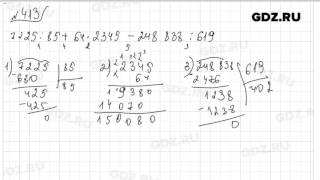 GDZ.RU
№413
7225 : 85 + 64 · 2345 - 248 838 : 619
1 4 2 5 3
1) 7225 | 85
680 | 85
425
-425
0
2) 2345
64
9380
14070
150080
3) 248838 | 619
2476 | 402
1238
-1238
0
GDZ.RU